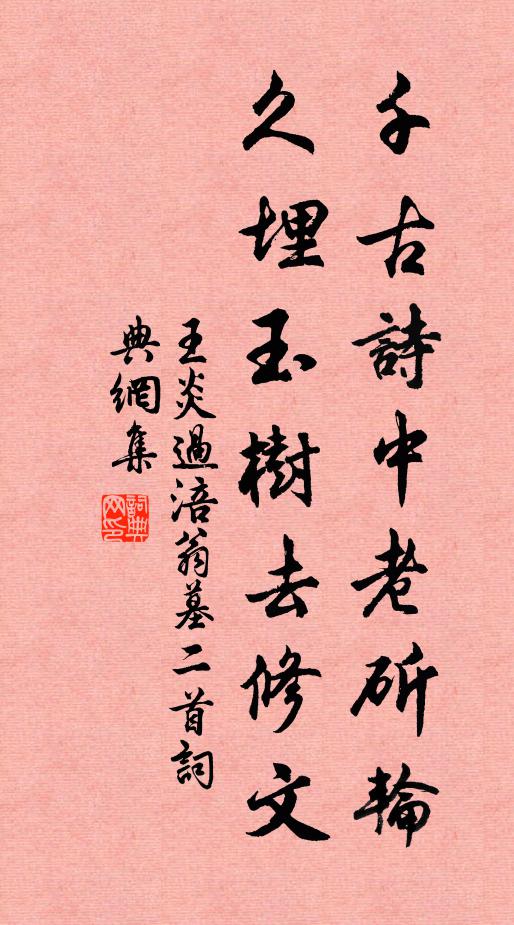 千古詩中老斫輪
久埋玉樹去修文
王炎過涪翁墓二首詞
典網集
詞典網印